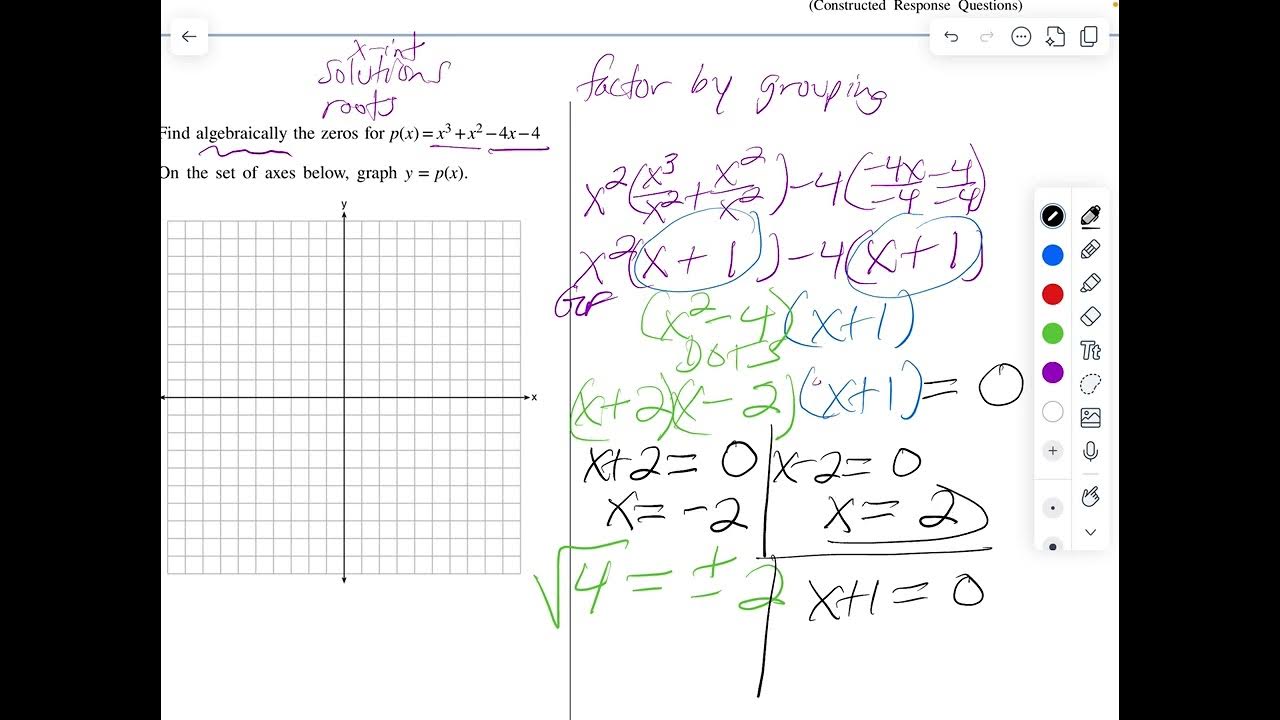 (Constructed Response Questions)
x-int
solutions
roots
Find algebraically the zeros for p(x) = x³ + x² − 4x − 4
On the set of axes below, graph y = p(x).
y
x
factor by grouping
x²(x³/x² + x²/x²) − 4(−4x/−4 − 4/−4)
x²(x + 1) − 4(x + 1)
GCF
(x² − 4)(x + 1)
DOTS
(x + 2)(x − 2)(x + 1) = 0
x + 2 = 0
x = −2
x − 2 = 0
x = 2
√4 = ± 2
x + 1 = 0
Tt